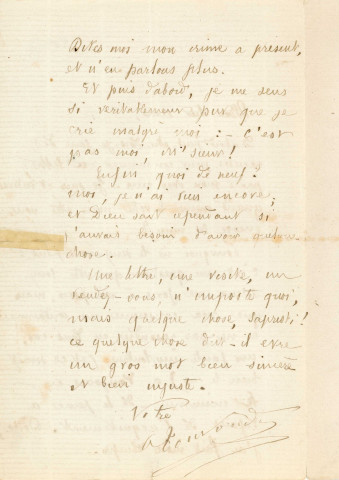 Dites moi mon crime a present,
et n'en parlons plus.
Et puis d'abord, je me sens
si veritablement pur que je
crie malgré moi : - c'est
pas moi, M'sieur !
Enfin quoi de neuf ?
moi, je n'ai rien encore,
et Dieu sait cependant si
j'aurais besoin d'avoir quelque
chose.
Une lettre, une visite, un
rendez-vous, n'importe quoi,
mais quelque chose, sapristi !
ce quelque chose dut-il etre
un gros mot bien sincère
et bien injuste.
Votre